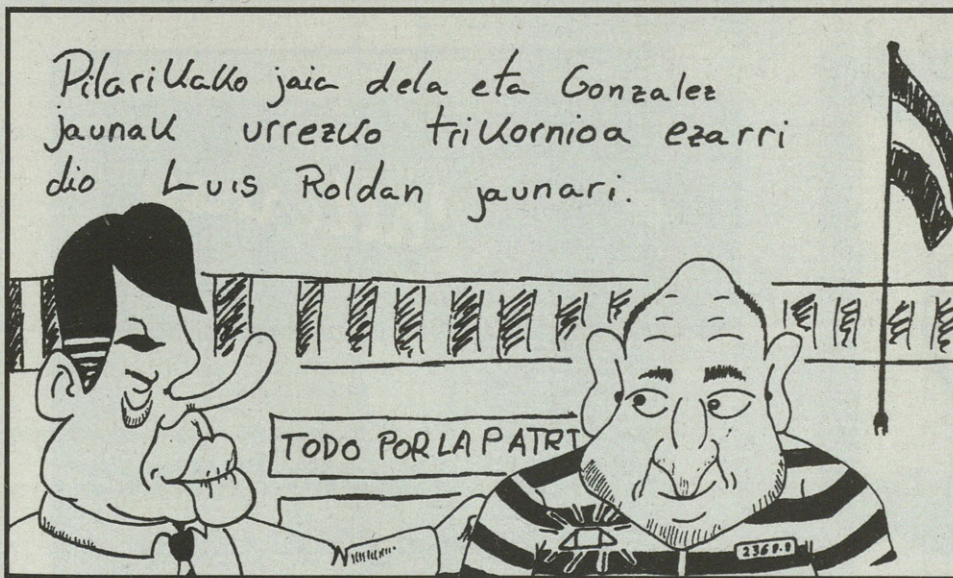 Pilarikako jaia dela eta Gonzalez
jaunak urrezko trikornioa ezarri
dio Luis Roldan jaunari.
TODO POR LA PATRI